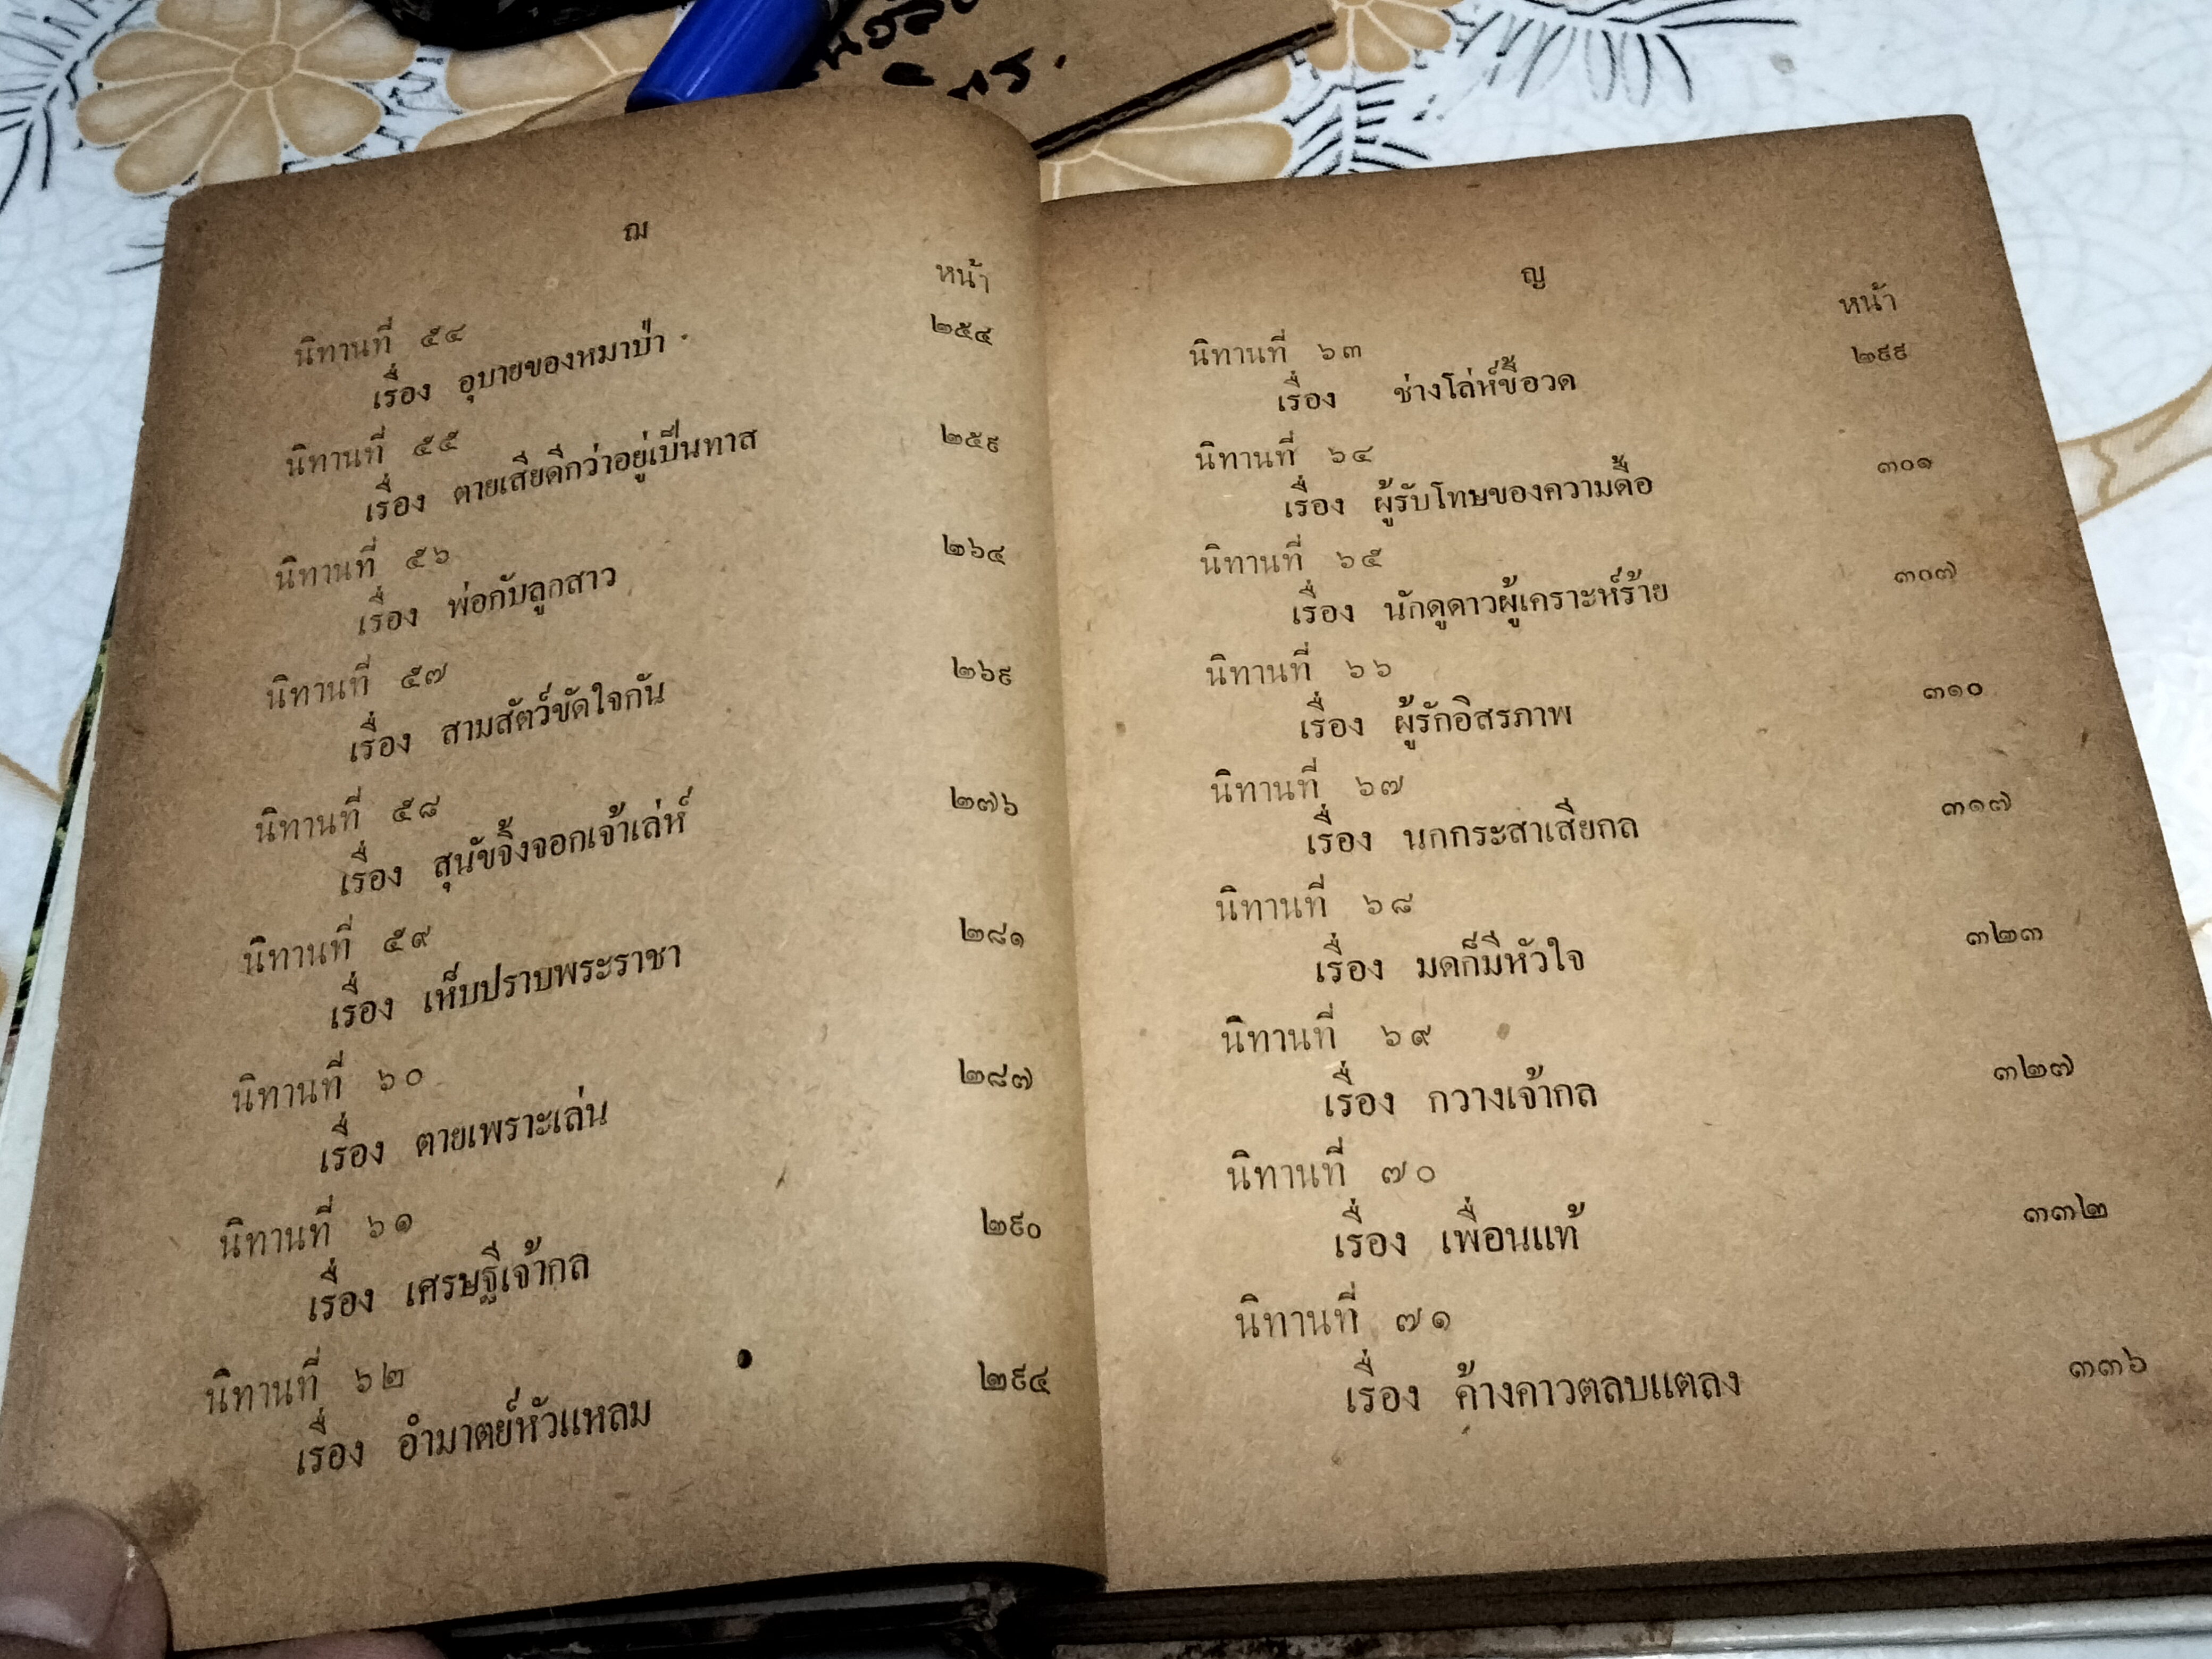 ฌ
หน้า
นิทานที่ ๕๔ ๒๕๔
เรื่อง อุบายของหมาป่า
นิทานที่ ๕๕ ๒๕๙
เรื่อง ตายเสียดีกว่าอยู่เป็นทาส
นิทานที่ ๕๖ ๒๖๔
เรื่อง พ่อกับลูกสาว
นิทานที่ ๕๗ ๒๖๙
เรื่อง สามสัตว์ขัดใจกัน
นิทานที่ ๕๘ ๒๗๖
เรื่อง สุนัขจิ้งจอกเจ้าเล่ห์
นิทานที่ ๕๙ ๒๘๑
เรื่อง เห็บปราบพระราชา
นิทานที่ ๖๐ ๒๘๗
เรื่อง ตายเพราะเล่น
นิทานที่ ๖๑ ๒๙๐
เรื่อง เศรษฐีเจ้ากล
นิทานที่ ๖๒ ๒๙๔
เรื่อง อำมาตย์หัวแหลม
ญ
หน้า
นิทานที่ ๖๓ ๒๙๙
เรื่อง ช่างโล่ห์ขี้อวด
นิทานที่ ๖๔ ๓๐๑
เรื่อง ผู้รับโทษของความดื้อ
นิทานที่ ๖๕ ๓๐๗
เรื่อง นักดูดาวผู้เคราะห์ร้าย
นิทานที่ ๖๖ ๓๑๐
เรื่อง ผู้รักอิสรภาพ
นิทานที่ ๖๗ ๓๑๗
เรื่อง นกกระสาเสียกล
นิทานที่ ๖๘ ๓๒๓
เรื่อง มดก็มีหัวใจ
นิทานที่ ๖๙ ๓๒๗
เรื่อง กวางเจ้ากล
นิทานที่ ๗๐ ๓๓๒
เรื่อง เพื่อนแท้
นิทานที่ ๗๑ ๓๓๖
เรื่อง ค้างคาวตลบแตลง